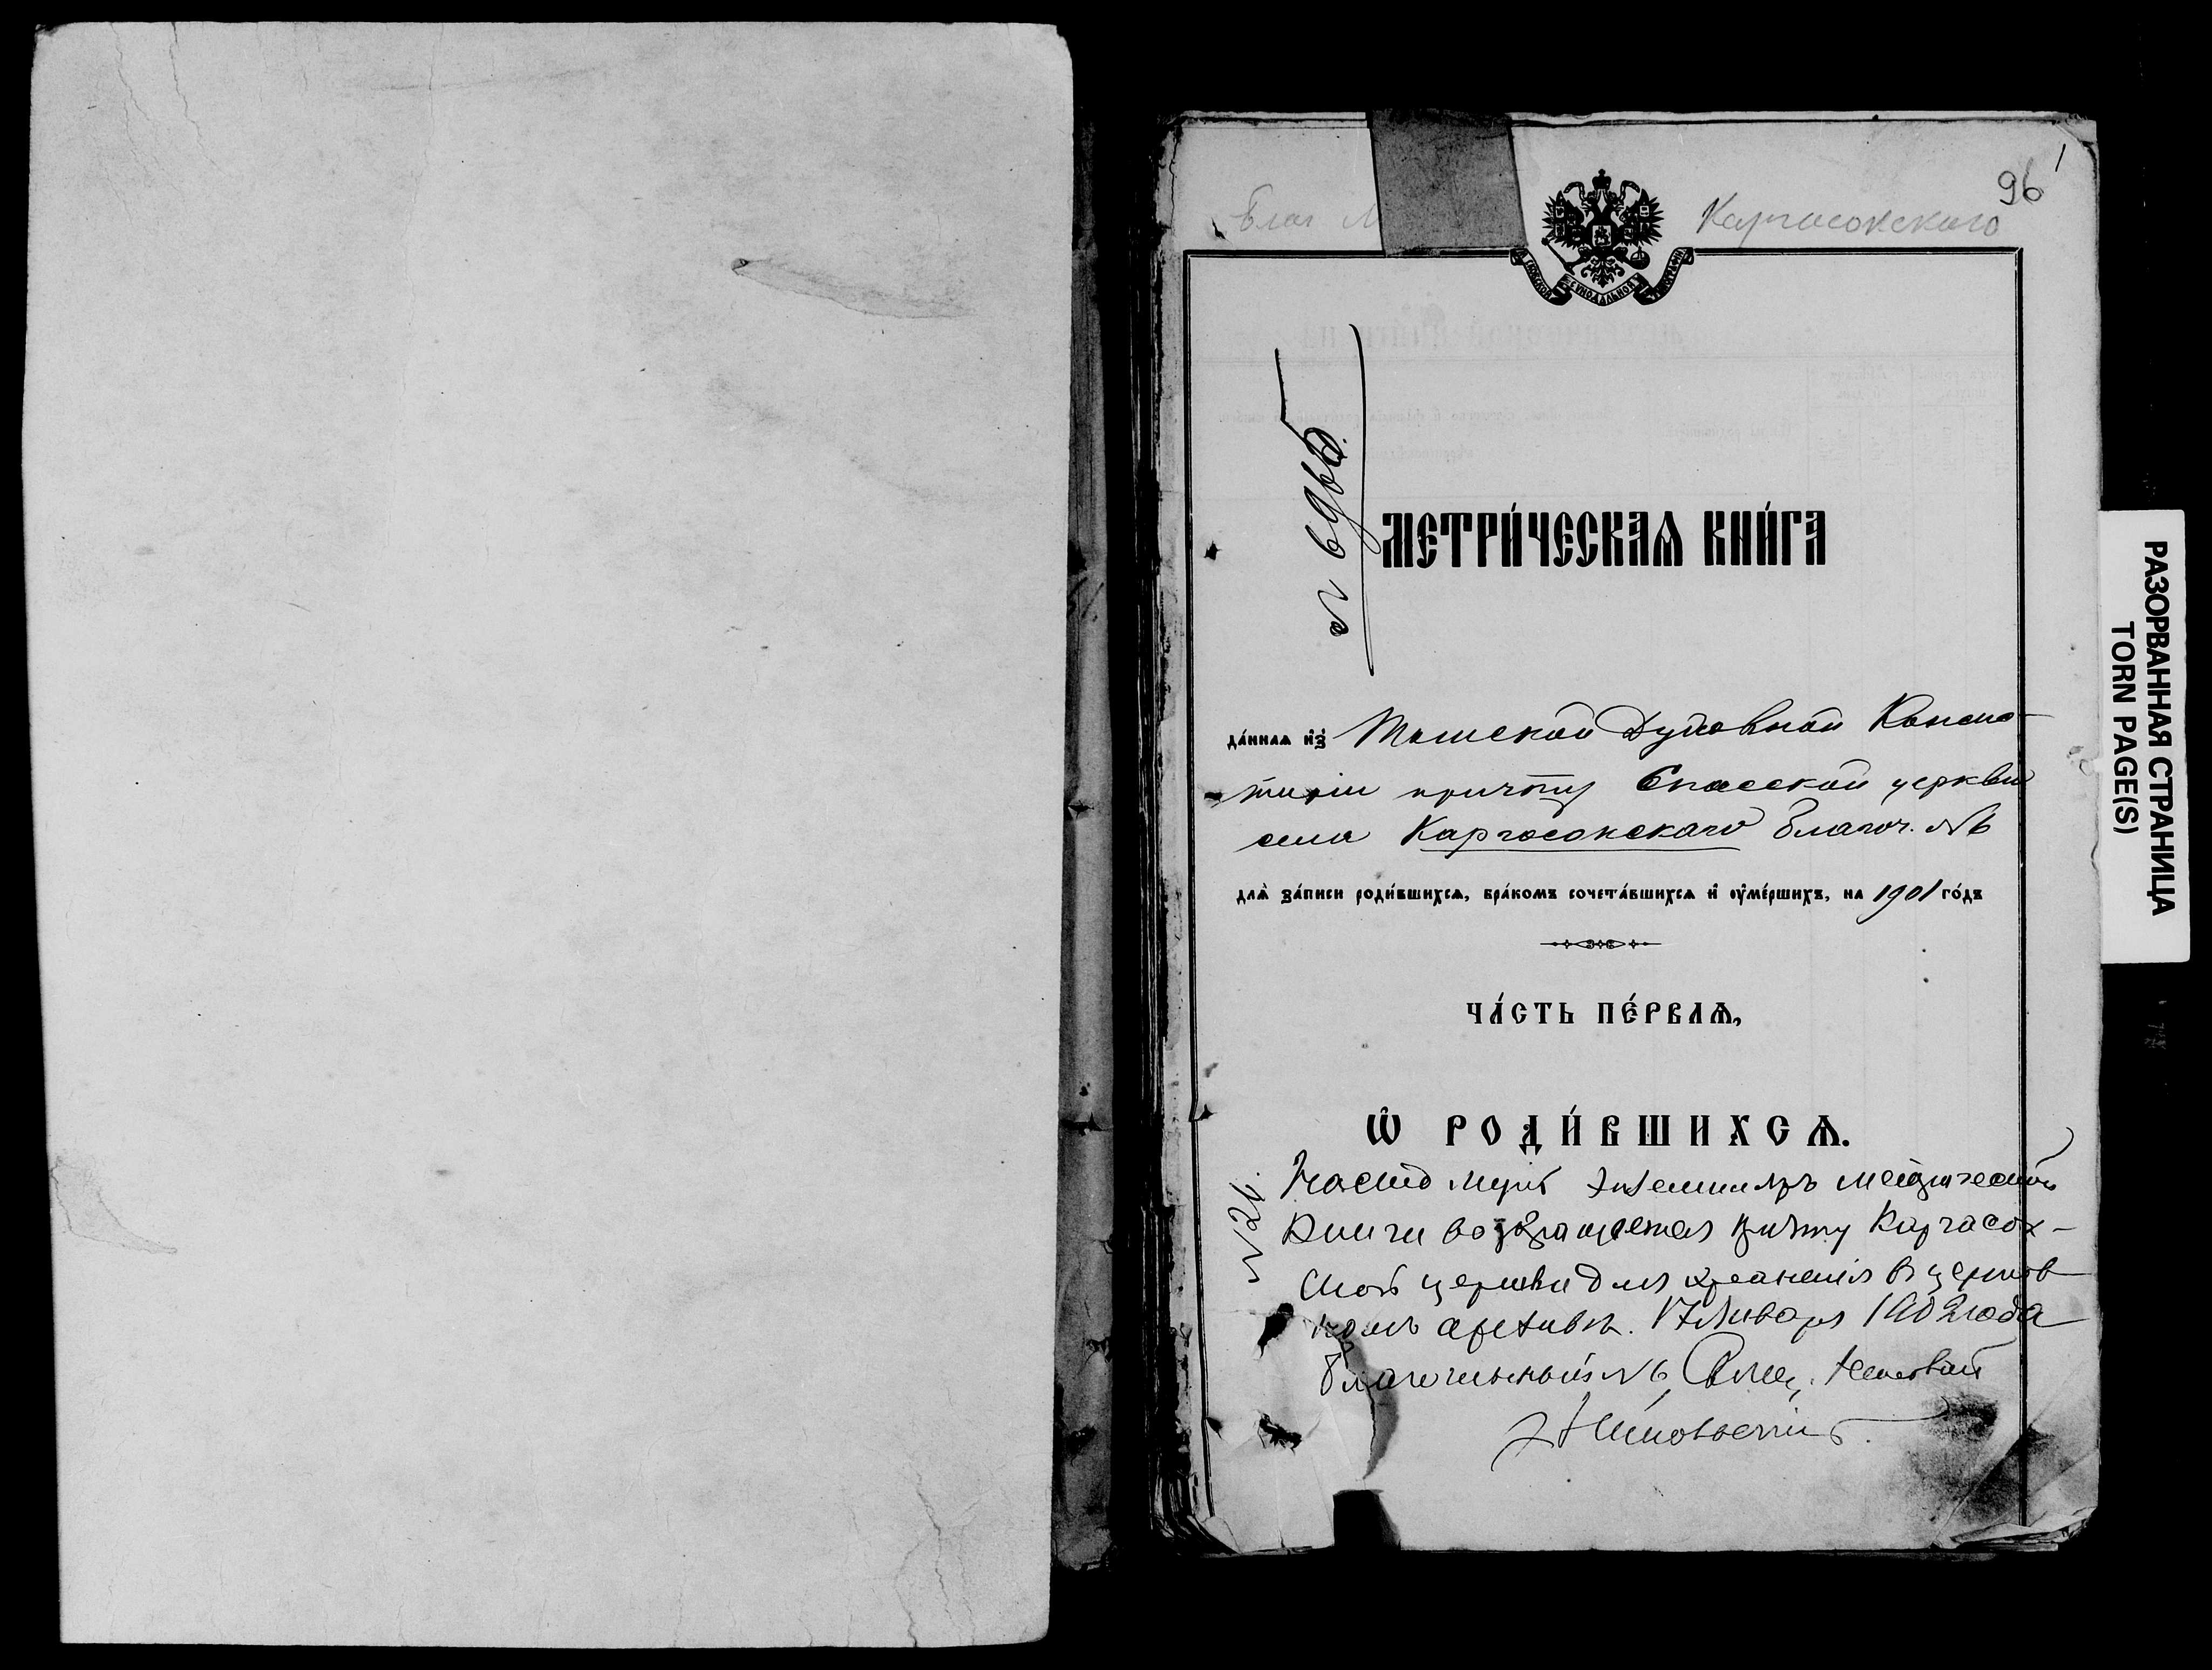 96
1
Благ
Каргасокскаго
СѴНОДАЛЬНОЙ
МЕТРИ́ЧЕСКАѦ КНИ́ГА
да́ннаѧ и҆з̾ Томской Духовной Консис-
торіи причту Спасской церкви
села Каргасокскаго благоч. №6
длѧ̀ за́писи роди́вшихсѧ, бра́комъ сочета́вшихсѧ и҆ ᲂу҆ме́ршихъ, на 1901 го́дъ
ЧА́СТЬ ПЕ́РВАѦ,
Ѽ РОДИ́ВШИХСѦ.
№ 21.
экземпляръ метрической
книги возвращается причту Каргасок-
ской церкви для храненія въ церков
номъ архивѣ. 17 Января 1902 года
Благочинный №6 Свящ.
РАЗОРВАННАЯ СТРАНИЦА
TORN PAGE(S)